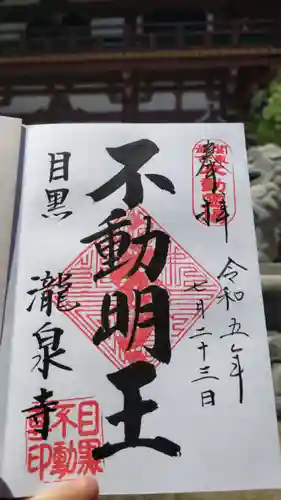 奉拝
令和五年
七月二十三日
不動明王
目黒
瀧泉寺
目黒
不動